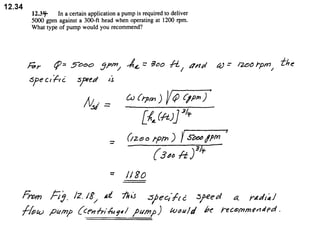 12.34
12.34 In a certain application a pump is required to deliver
5000 gpm against a 300-ft head when operating at 1200 rpm.
What type of pump would you recommend?
For Q = 5000 gpm, hₐ = 300 ft, and ω = 1200 rpm, the
specific speed is
N_sd = ω(rpm) √Q(gpm) / [hₐ(ft)]^3/4
= (1200 rpm) √5000 gpm / (300 ft)^3/4
= 1180
From Fig. 12.18, at this specific speed a radial
flow pump (centrifugal pump) would be recommended.